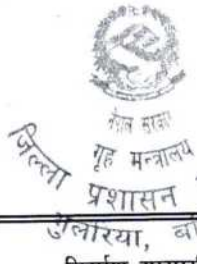 नेपाल सरकार
गृह मन्त्रालय
जिल्ला प्रशासन
गुलरिया,